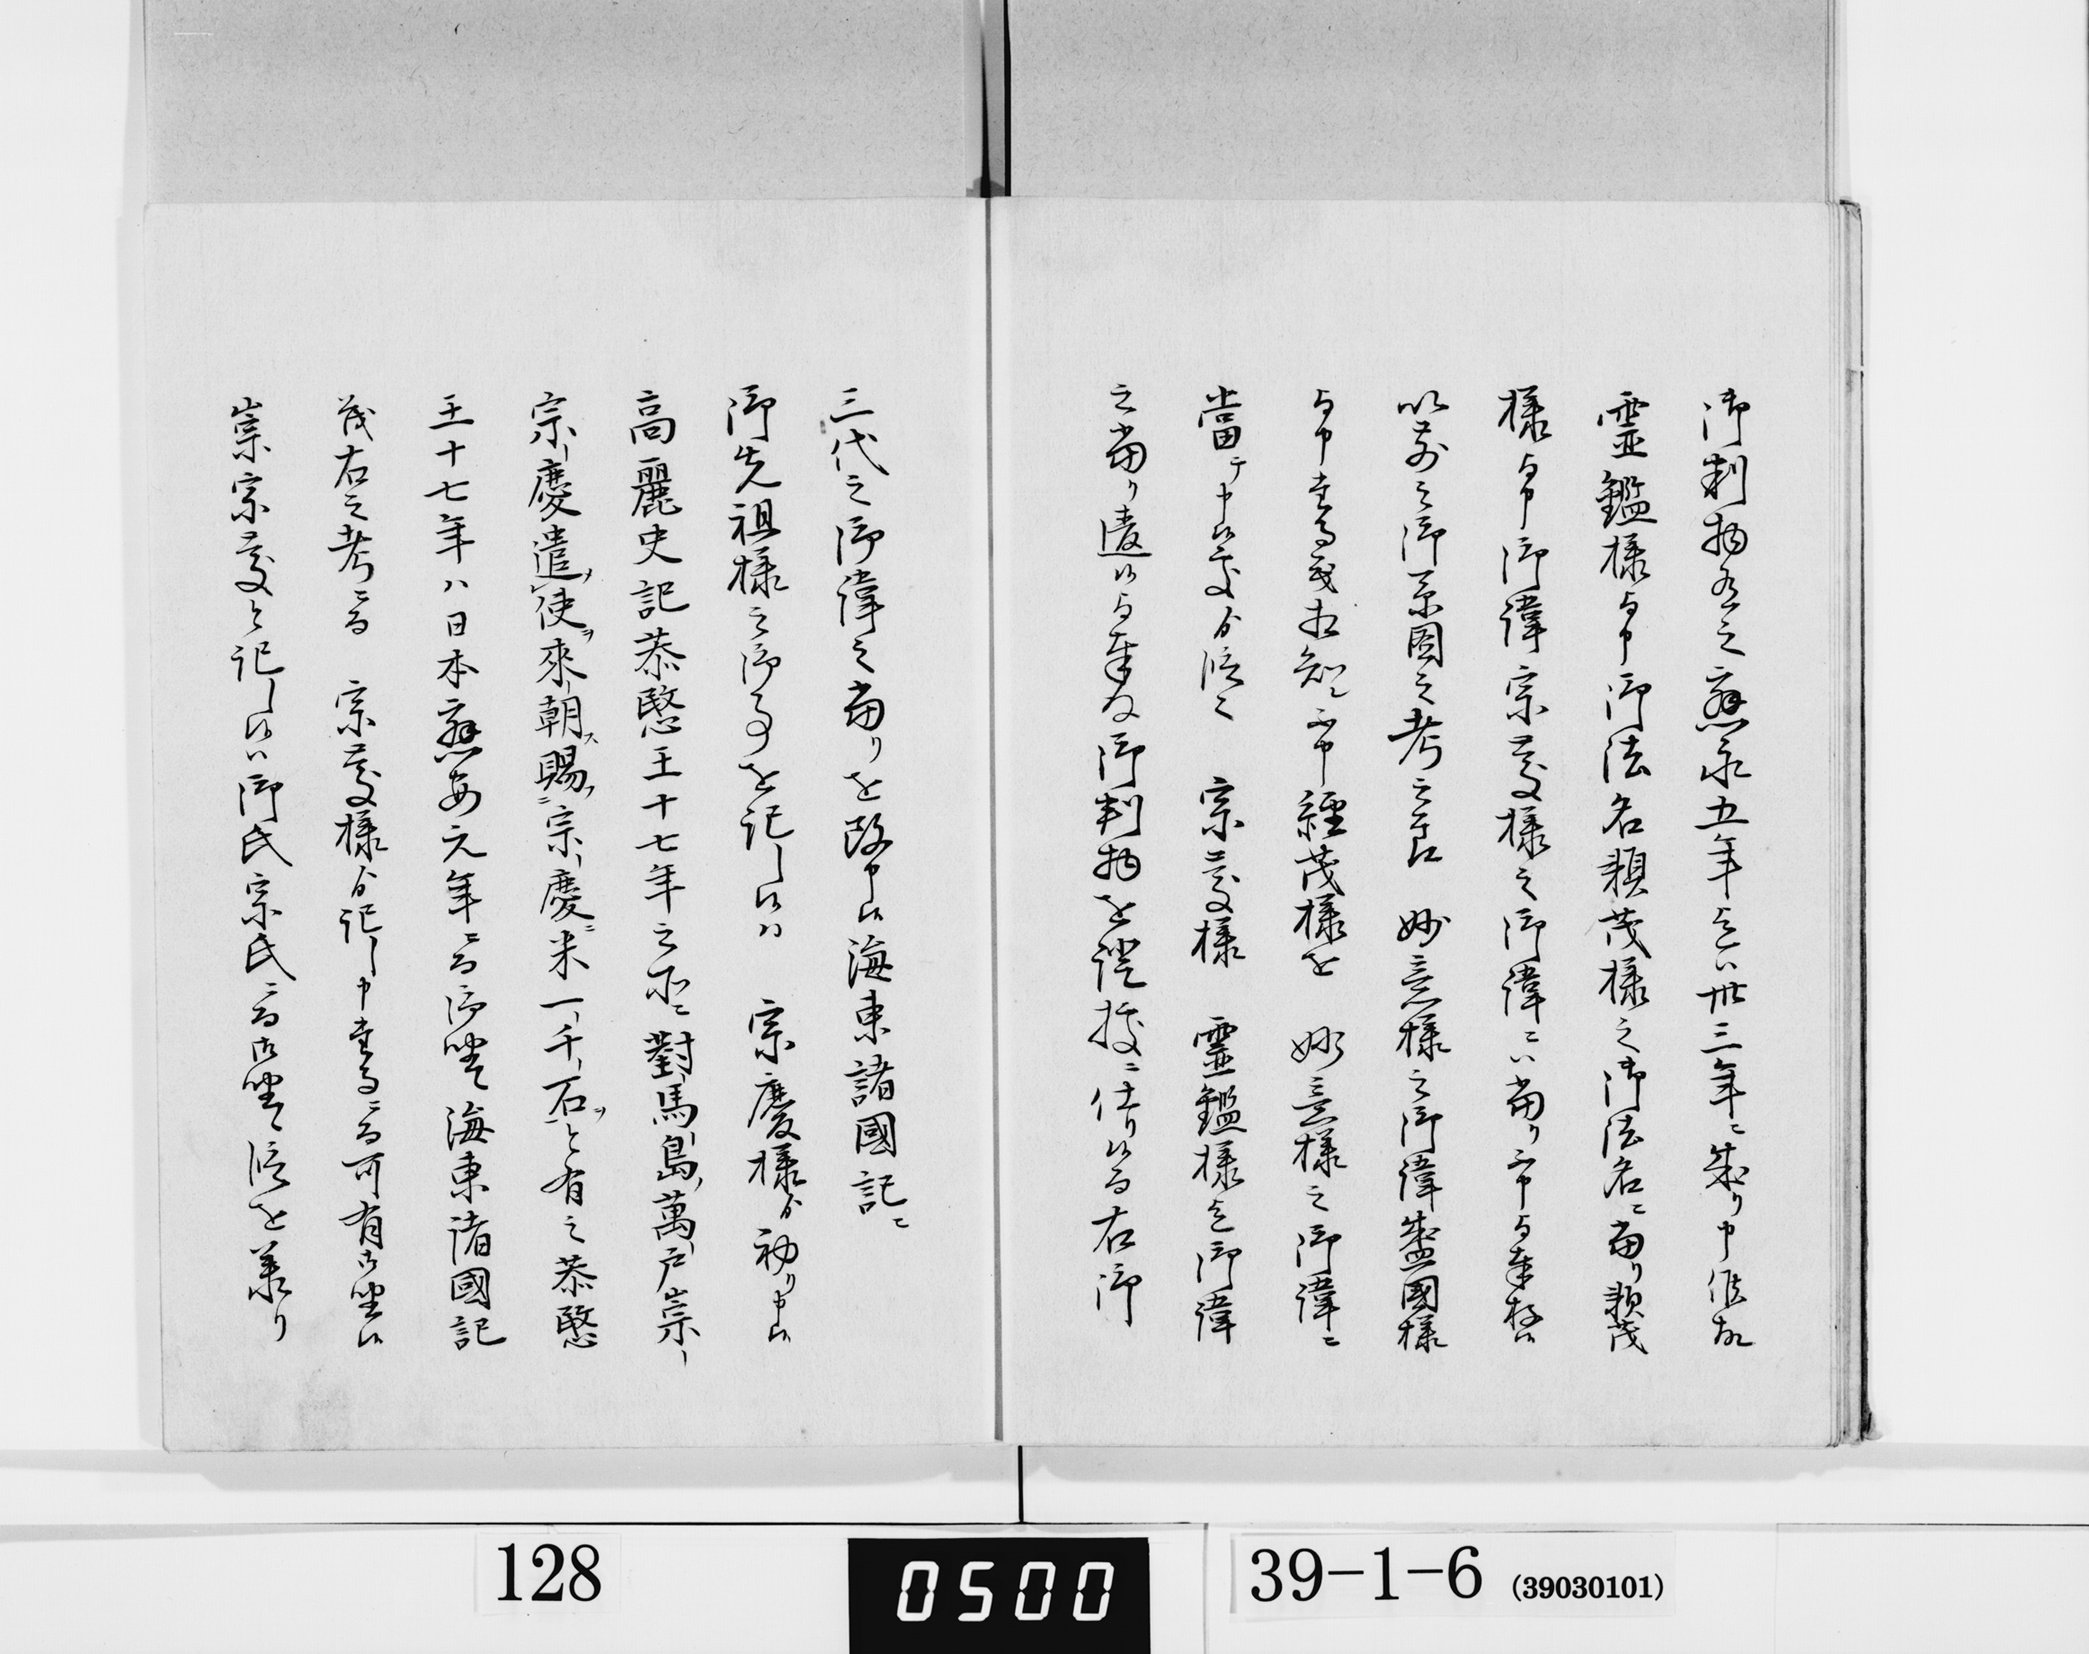 御判物有之應永五年ゟハ卅三年ニ成り申候故
靈鑑様と申御法名頼茂様之御法名ニ當り頼茂
様と申御諱宗慶様之御諱ニハ當り不申与奉存候
以前之御系図之考之節 妙意様之御諱盛國様
与申事も相知レ不申經茂様を 妙意様之御諱ニ
當テ申候處ゟ段々 宗慶様 靈鑑様迄御諱
之當り違候与奉存御判物を證據ニ仕り候而右御
三代之御諱之當りを改申候海東諸國記ニ
御先祖様之御事を記し候ハ 宗慶様ゟ初り申候
高麗史記恭愍王十七年之所ニ對馬島萬戸崇
宗慶遣使來朝賜宗慶米一千石と有之恭愍
王十七年ハ日本應安元年ニ而御座候海東諸國記
茂右之考ニ而 宗慶様ゟ記し申事ニ而可有御座候
崇宗慶と記し候ハ御氏宗氏ニ而御座候段を兼り
128
0500
39-1-6 (39030101)